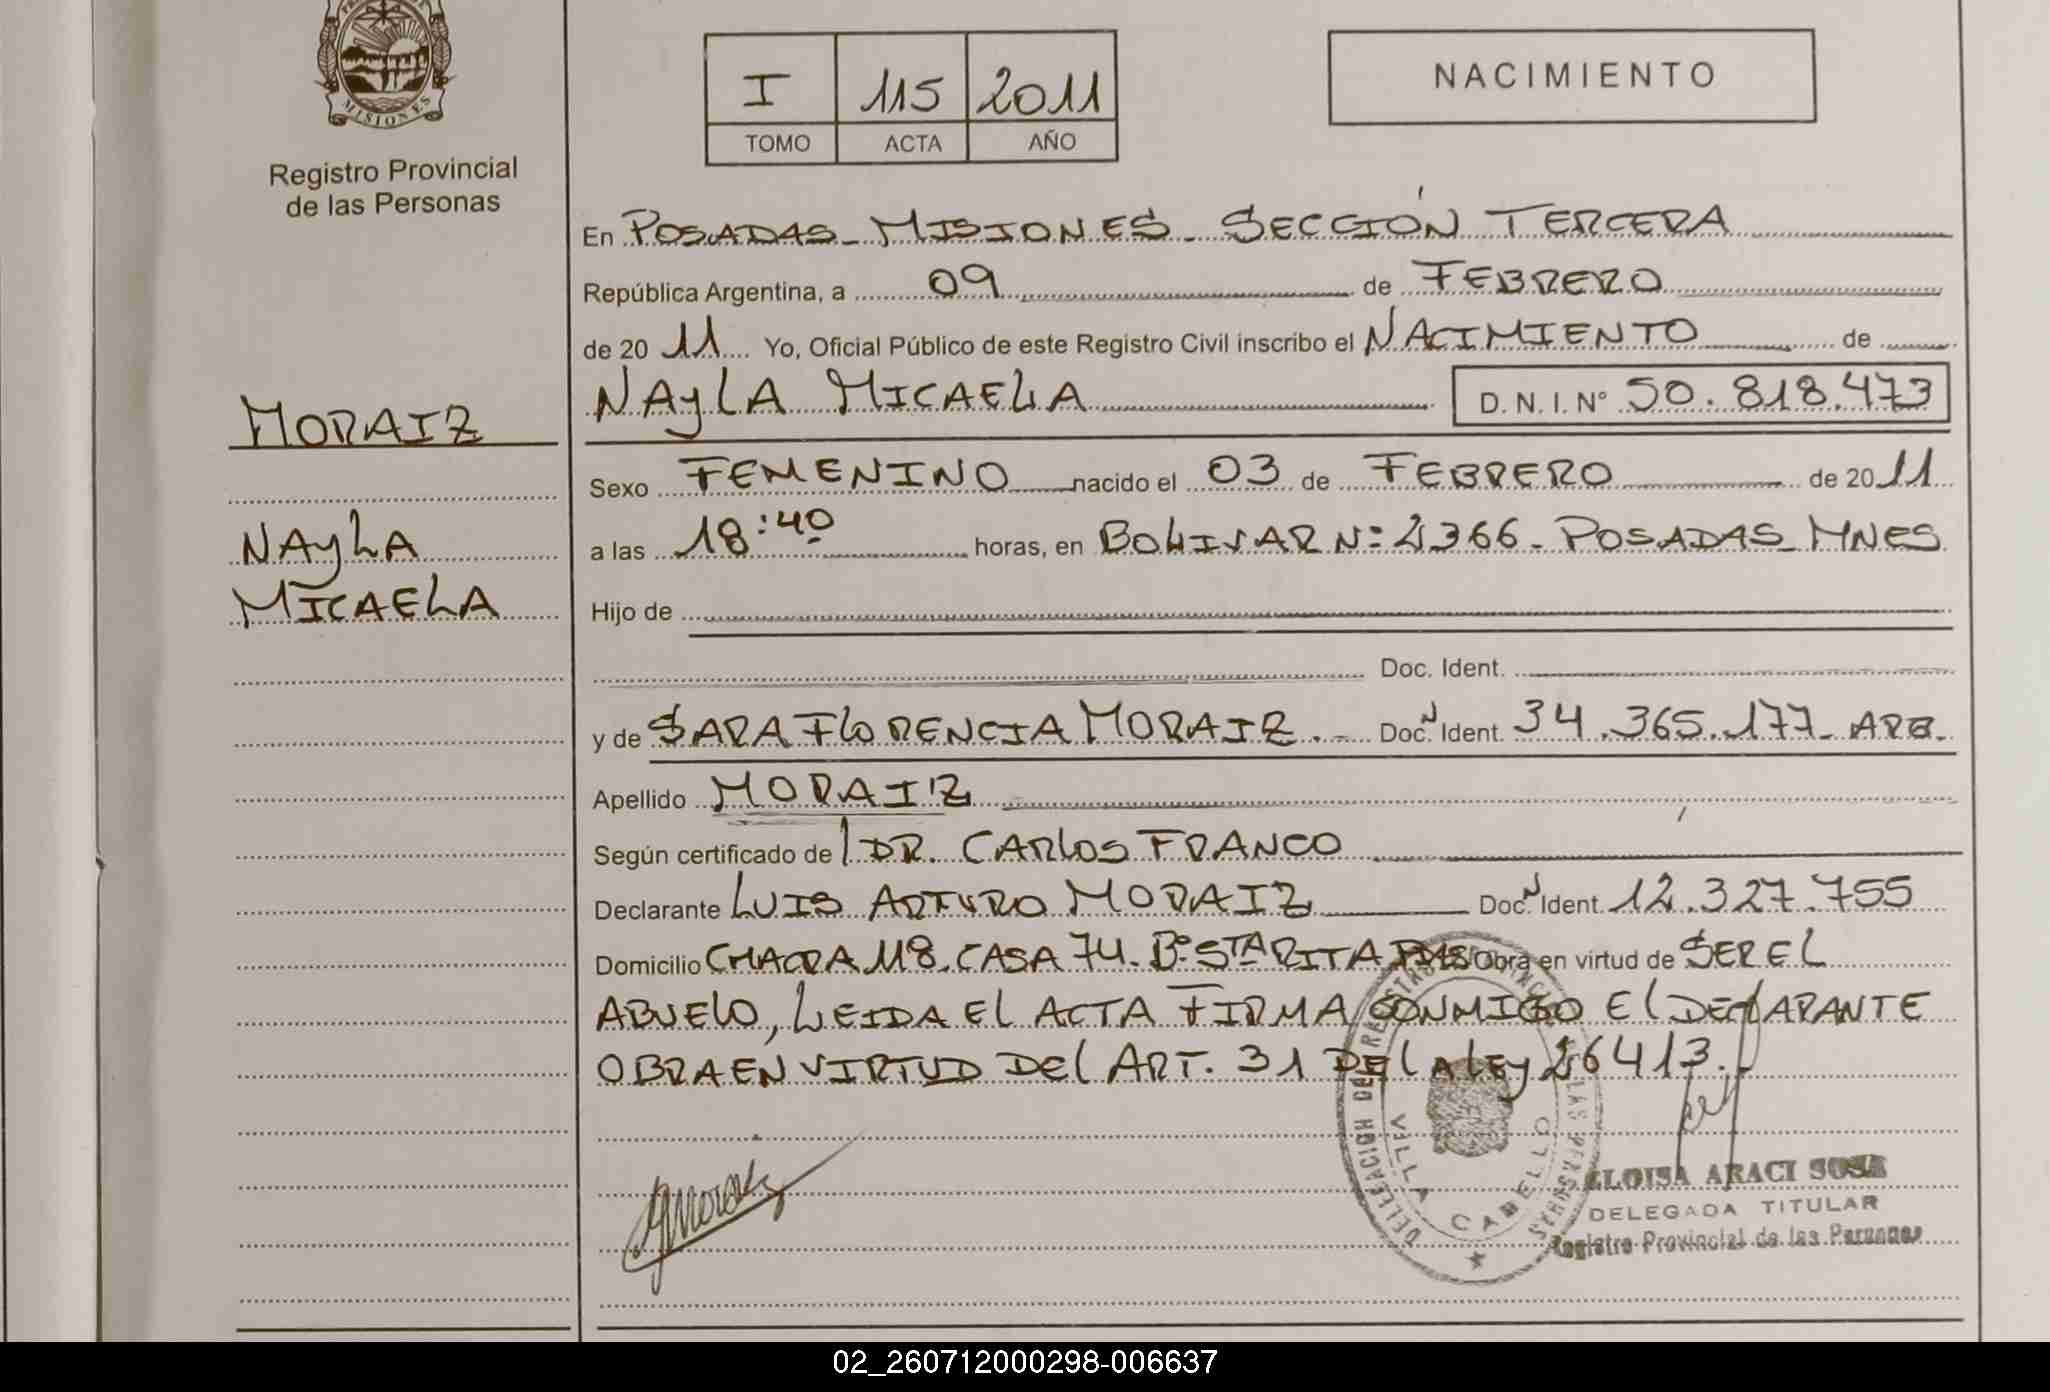 MISIONES
Registro Provincial
de las Personas
I 115 2011
TOMO ACTA AÑO
NACIMIENTO
En POSADAS - MISIONES - SECCIÓN TERCERA
República Argentina, a 09 de FEBRERO
de 2011 Yo, Oficial Público de este Registro Civil inscribo el NACIMIENTO de
NAYLA MICAELA D.N.I. N° 50.818.473
MORAIZ
NAYLA
MICAELA
Sexo FEMENINO nacido el 03 de FEBRERO de 2011
a las 18:40 horas, en BOLIVAR Nº 2366 - POSADAS - MNES
Hijo de
Doc. Ident.
y de SARA FLORENCIA MORAIZ.- Doc. N Ident. 34.365.177 - ARG.
Apellido MORAIZ
Según certificado de DR. CARLOS FRANCO
Declarante LUIS ARTURO MORAIZ Doc. N Ident. 12.327.755
Domicilio CHACRA 118. CASA 74. Bº STA RITA PDAS Obra en virtud de SER EL
ABUELO, LEIDA EL ACTA FIRMA CONMIGO EL DECLARANTE
OBRA EN VIRTUD DEL ART. 31 DE LA LEY 26413.
DELEGACION DEL REGISTRO PROVINCIAL DE LAS PERSONAS
VILLA CABELLO
ELOISA ARACI SOSA
DELEGADA TITULAR
Registro Provincial de las Personas
02_260712000298-006637